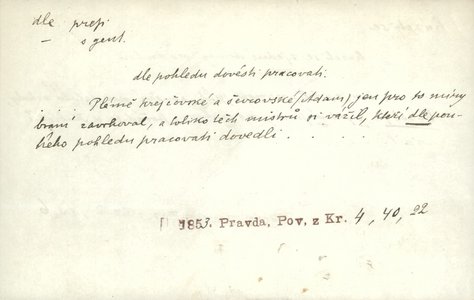 dle prep
— s gent.
dle pohledu dovésti pracovati.
. . . . Plátně krejčovské a ševcovské (Adam) jen pro to míry
braní zavrhoval, a toliko těch mistrů si vážil, kteří dle pou-
hého pohledu pracovati dovedli . . . .
1853. Pravda, Pov. z Kr. 4, 40, 22